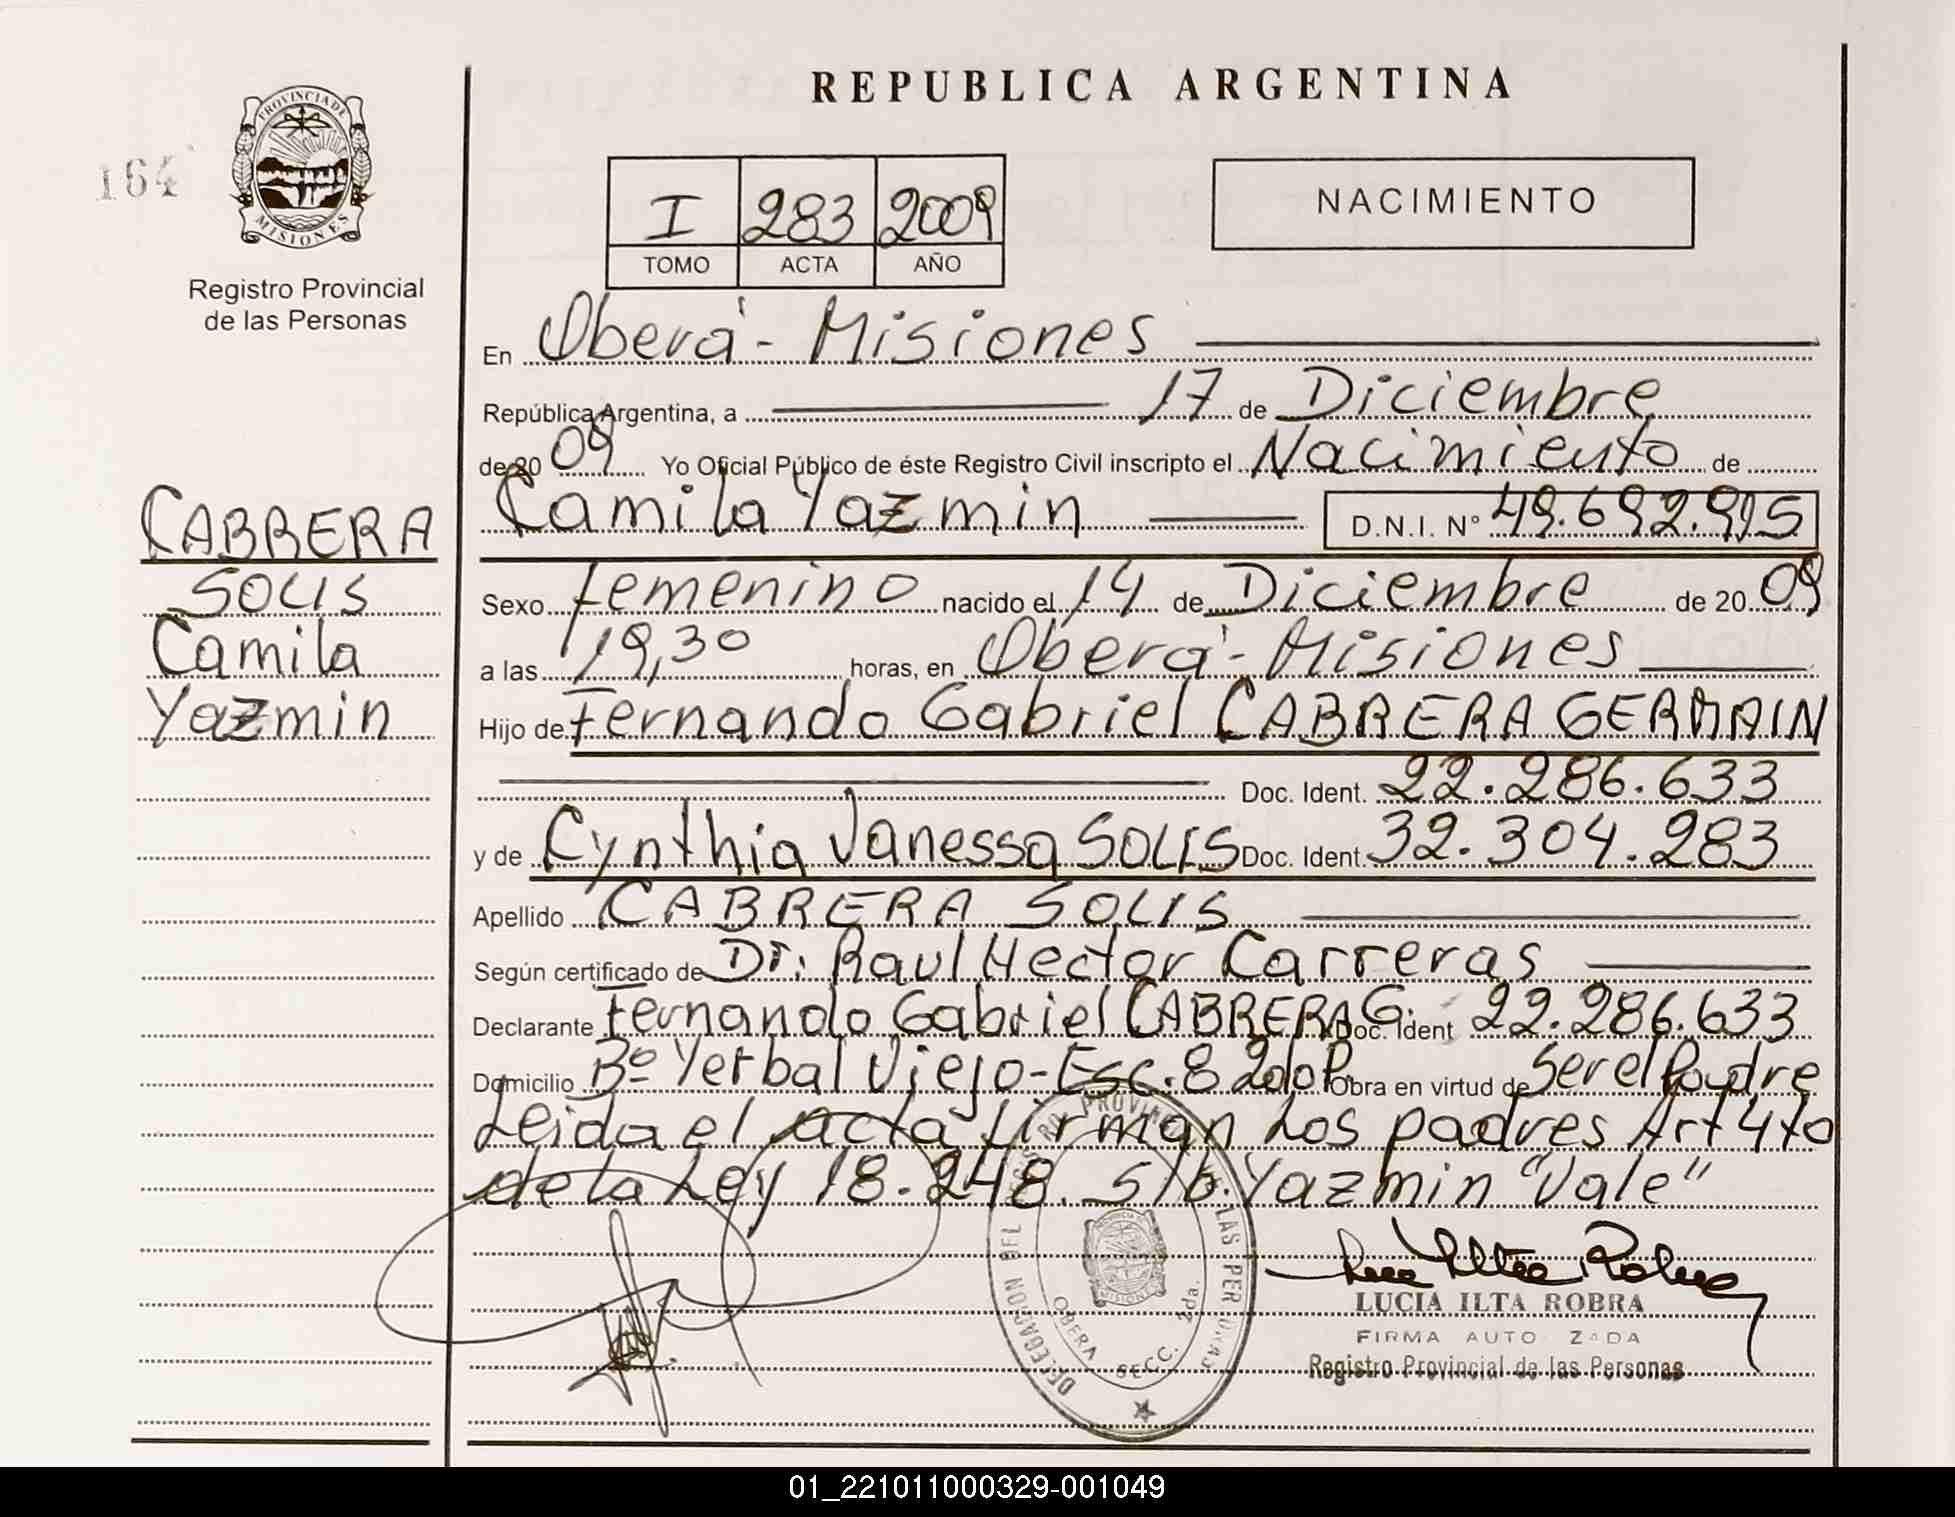 REPUBLICA ARGENTINA
PROVINCIA DE
MISIONES
164
Registro Provincial
de las Personas
I 283 2009
TOMO ACTA AÑO
NACIMIENTO
En Oberá - Misiones
República Argentina, a 17 de Diciembre
de 20 09 Yo Oficial Público de éste Registro Civil inscripto el Nacimiento de
Camila Yazmin D.N.I. N° 49.692.915
CABRERA
SOLIS
Camila
Yazmin
Sexo femenino nacido el 14 de Diciembre de 20 09
a las 19,30 horas, en Oberá - Misiones
Hijo de Fernando Gabriel CABRERA GERMAIN
Doc. Ident. 22.286.633
y de Cynthia Vanessa SOLIS Doc. Ident. 32.304.283
Apellido CABRERA SOLIS
Según certificado de Dr. Raul Hector Carreras
Declarante Fernando Gabriel CABRERA G. Doc. Ident 22.286.633
Domicilio Bº Yerbal Viejo - Esc. 8 2do P. Obra en virtud de Ser el Padre
Leida el acta firman Los padres Art 4to
de la Ley 18.248. s/b. Yazmin "Vale"
DELEGACION DEL REGISTRO PROVINCIAL DE LAS PERSONAS
OBERA SECC. 2da.
LUCIA ILTA ROBRA
FIRMA AUTO ZADA
Registro Provincial de las Personas
01_221011000329-001049